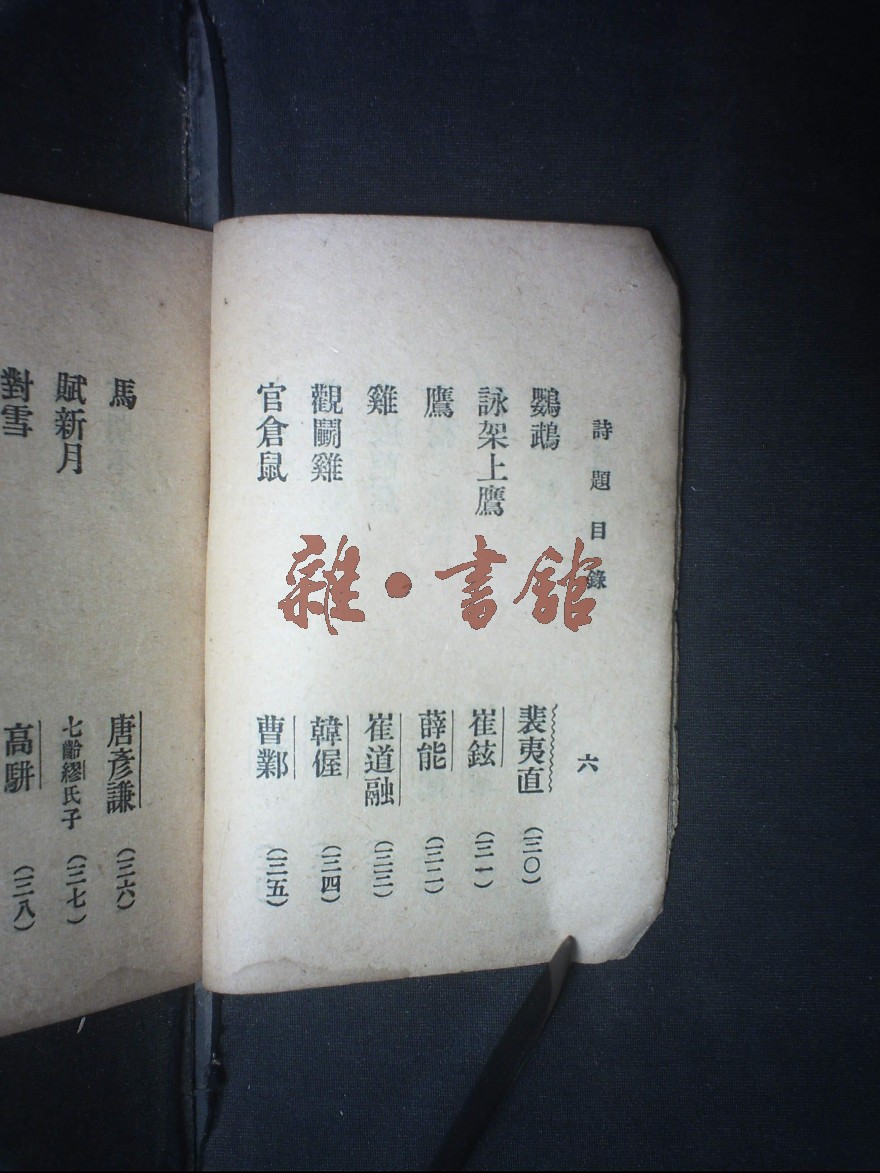 詩題目錄 六
鸚鵡 裴夷直 (三〇)
詠架上鷹 崔鉉 (三一)
鷹 薛能 (三二)
雞 崔道融 (三三)
觀鬭雞 韓偓 (三四)
官倉鼠 曹鄴 (三五)
馬 唐彥謙 (三六)
賦新月 七齡繆氏子 (三七)
對雪 高駢 (三八)
雜·書館